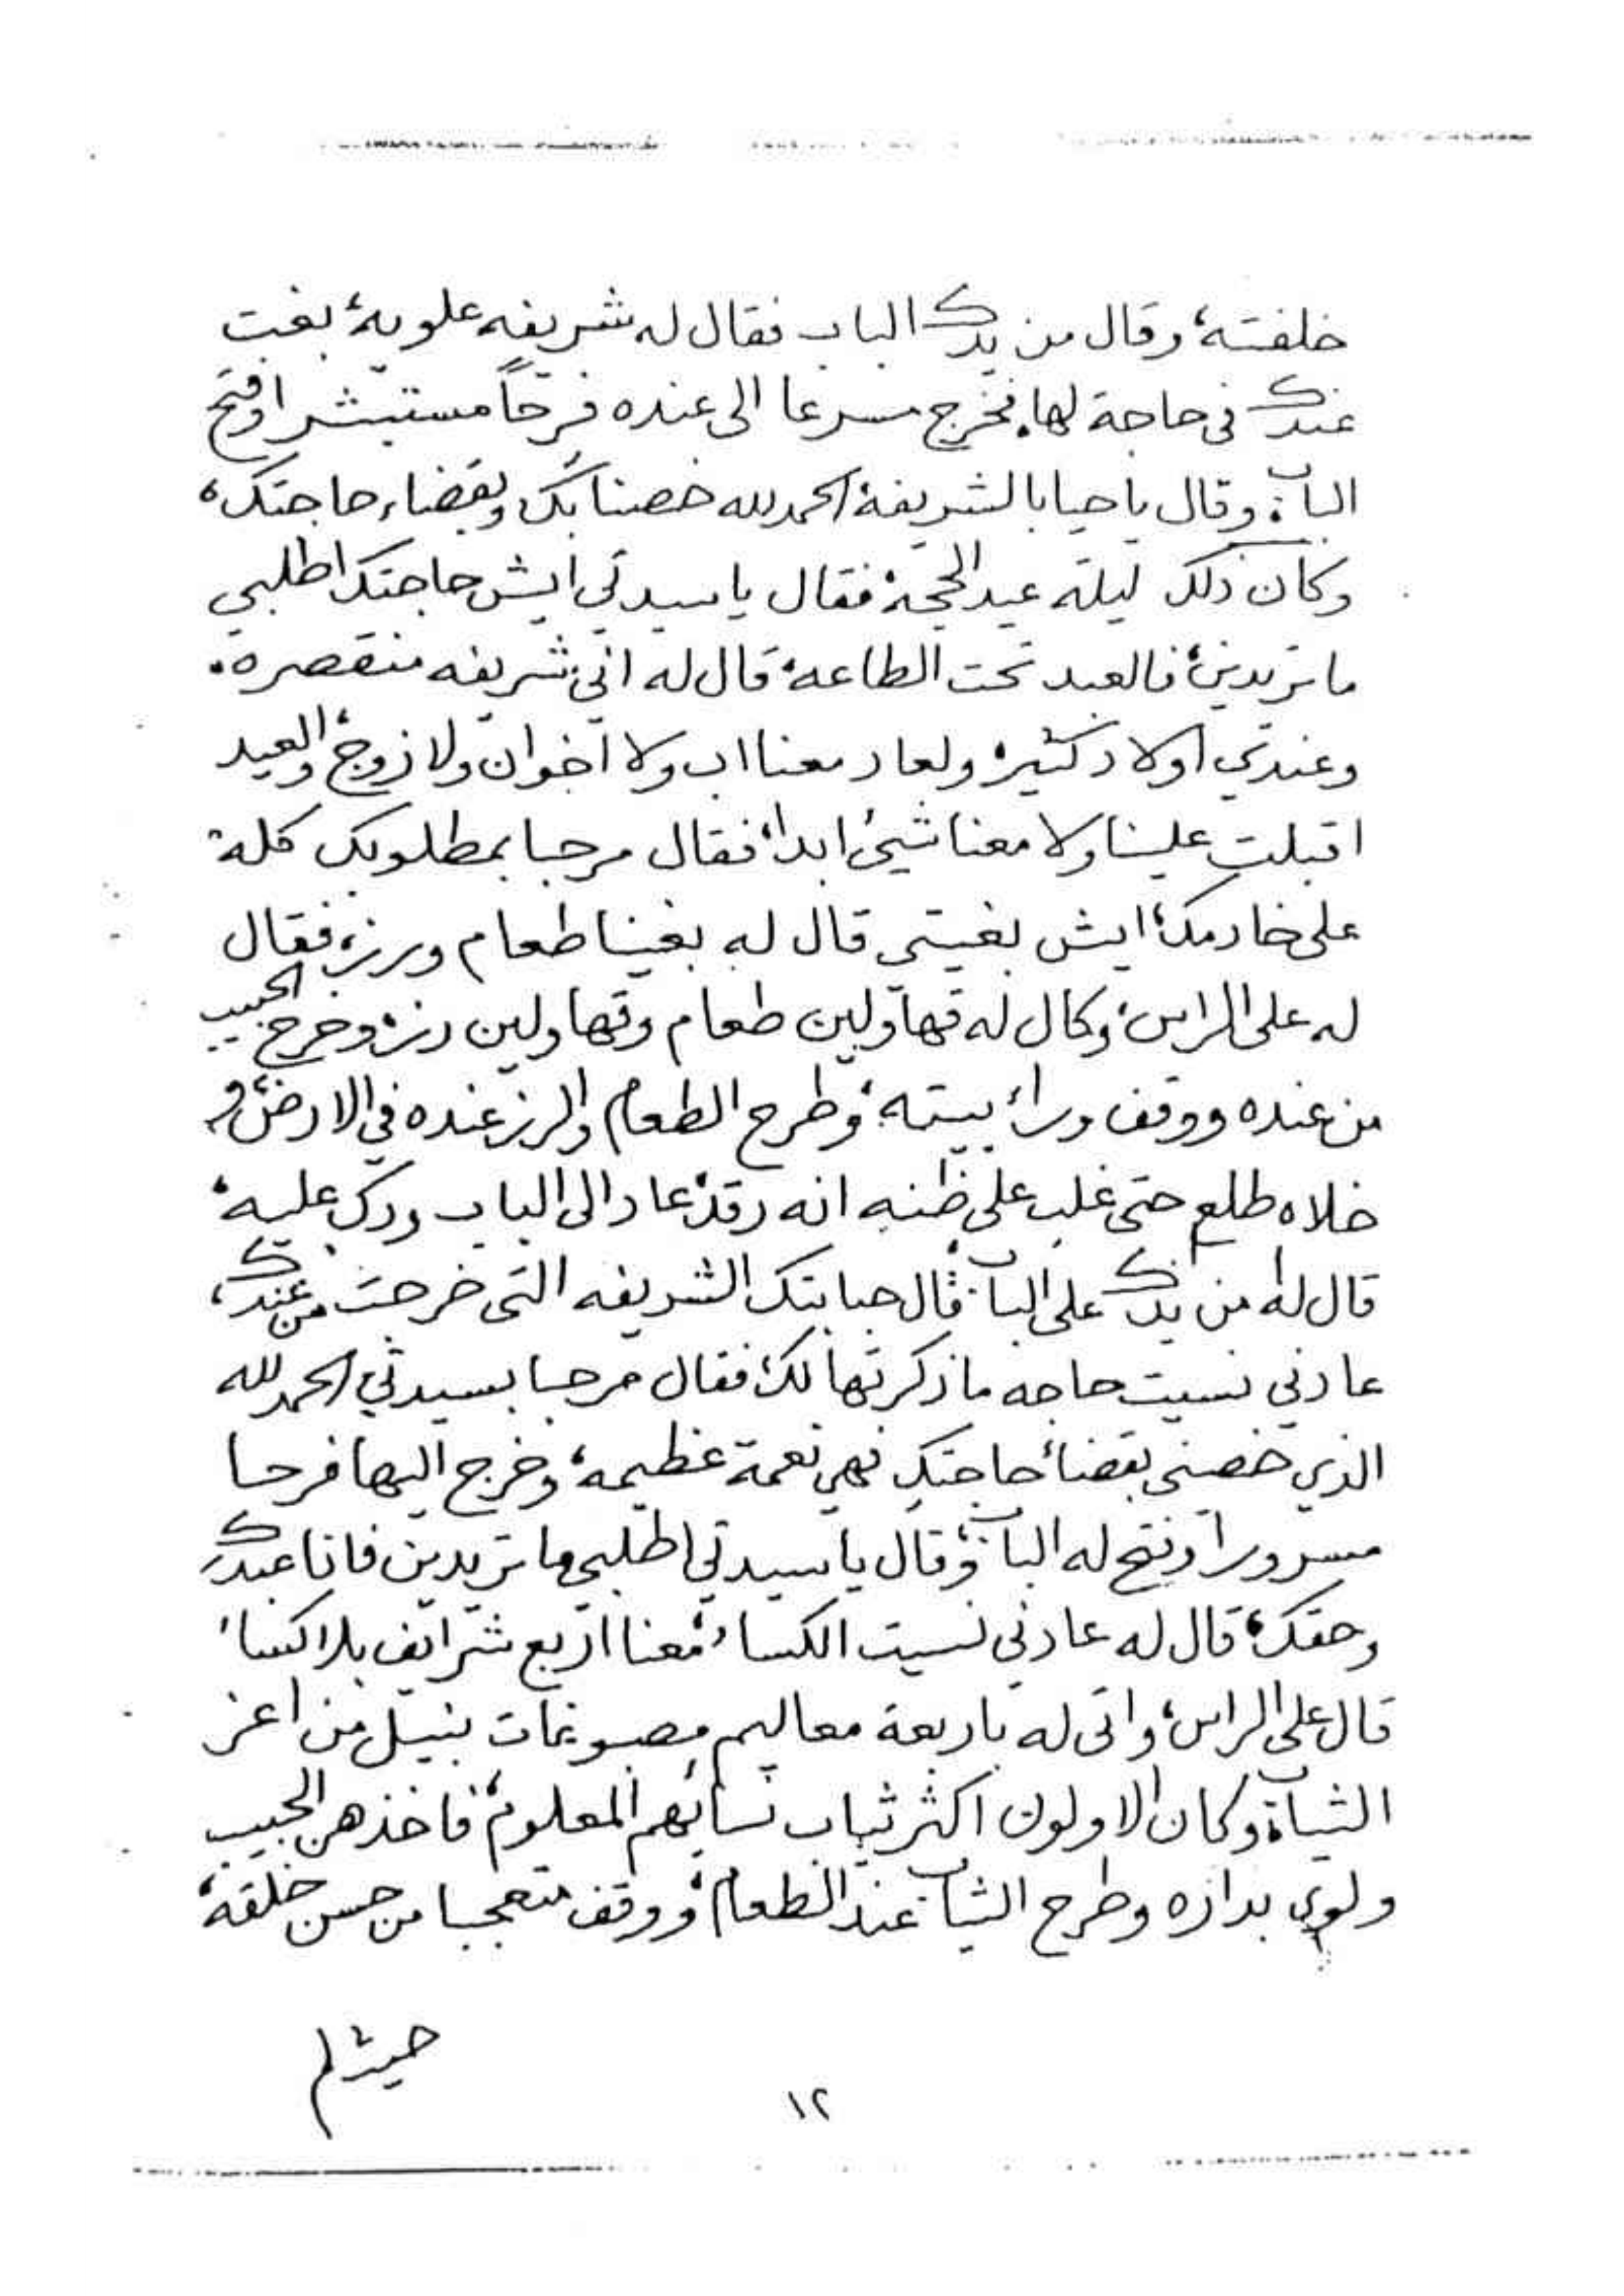 خلفته، وقال من يدك الباب فقال له شريفه علويه، بغت
عندك في حاجة لها، فخرج مسرعا الى عنده فرحاً مستبشرا وفتح
الباب، وقال ياحبابا الشريفة، الحمد لله خصنا بك وبقضاء حاجتك،
وكان ذلك ليلة عيد الحجة، فقال ياسيدتي ايش حاجتك اطلبي
ما تريدين، فالعبد تحت الطاعه، قال له اني شريفه منقصره،
وعندي اولاد كثير، ولعاد معنا اب ولا اخوان ولا زوج، والعيد
اقبلت علينا ولا معنا شيئ ابدا، فقال مرحبا بمطلوبك كله
على خادمك، ايش بغيتي قال له بغينا طعام ورز، فقال
له على الراس، وكال له قهاولين طعام وقهاولين رز، وخرج الحبيب
من عنده ووقف وراء بيته، وطرح الطعام والرز عنده في الارض، و
خلاه طلع حتى غلب على ظنه انه رقد، عاد الى الباب ودك عليه،
قال له من يدك على الباب، قال حبابتك الشريفه التى خرجت من عندك،
عادني نسيت حاجه ما ذكرتها لك، فقال مرحبا بسيدتي الحمد لله
الذي خصنى بقضاء حاجتك فهي نعمة عظيمه، وخرج اليها فرحا
مسرورا وفتح له الباب، وقال ياسيدتي اطلبي ما تريدين فانا عبدك
وحقك، قال له عادني نسيت الكساء، معنا اربع شرايف بلا كساء
قال على الراس، واتى له باربعة معاليم مصبوغات بنيل من اعز
الثياب، وكان الاولون اكثر ثياب نسائهم المعلوم، فاخذهن الحبيب
ولوى بداره وطرح الثياب عند الطعام، ووقف متعجبا من حسن خلقه،
حيث لم
١٢